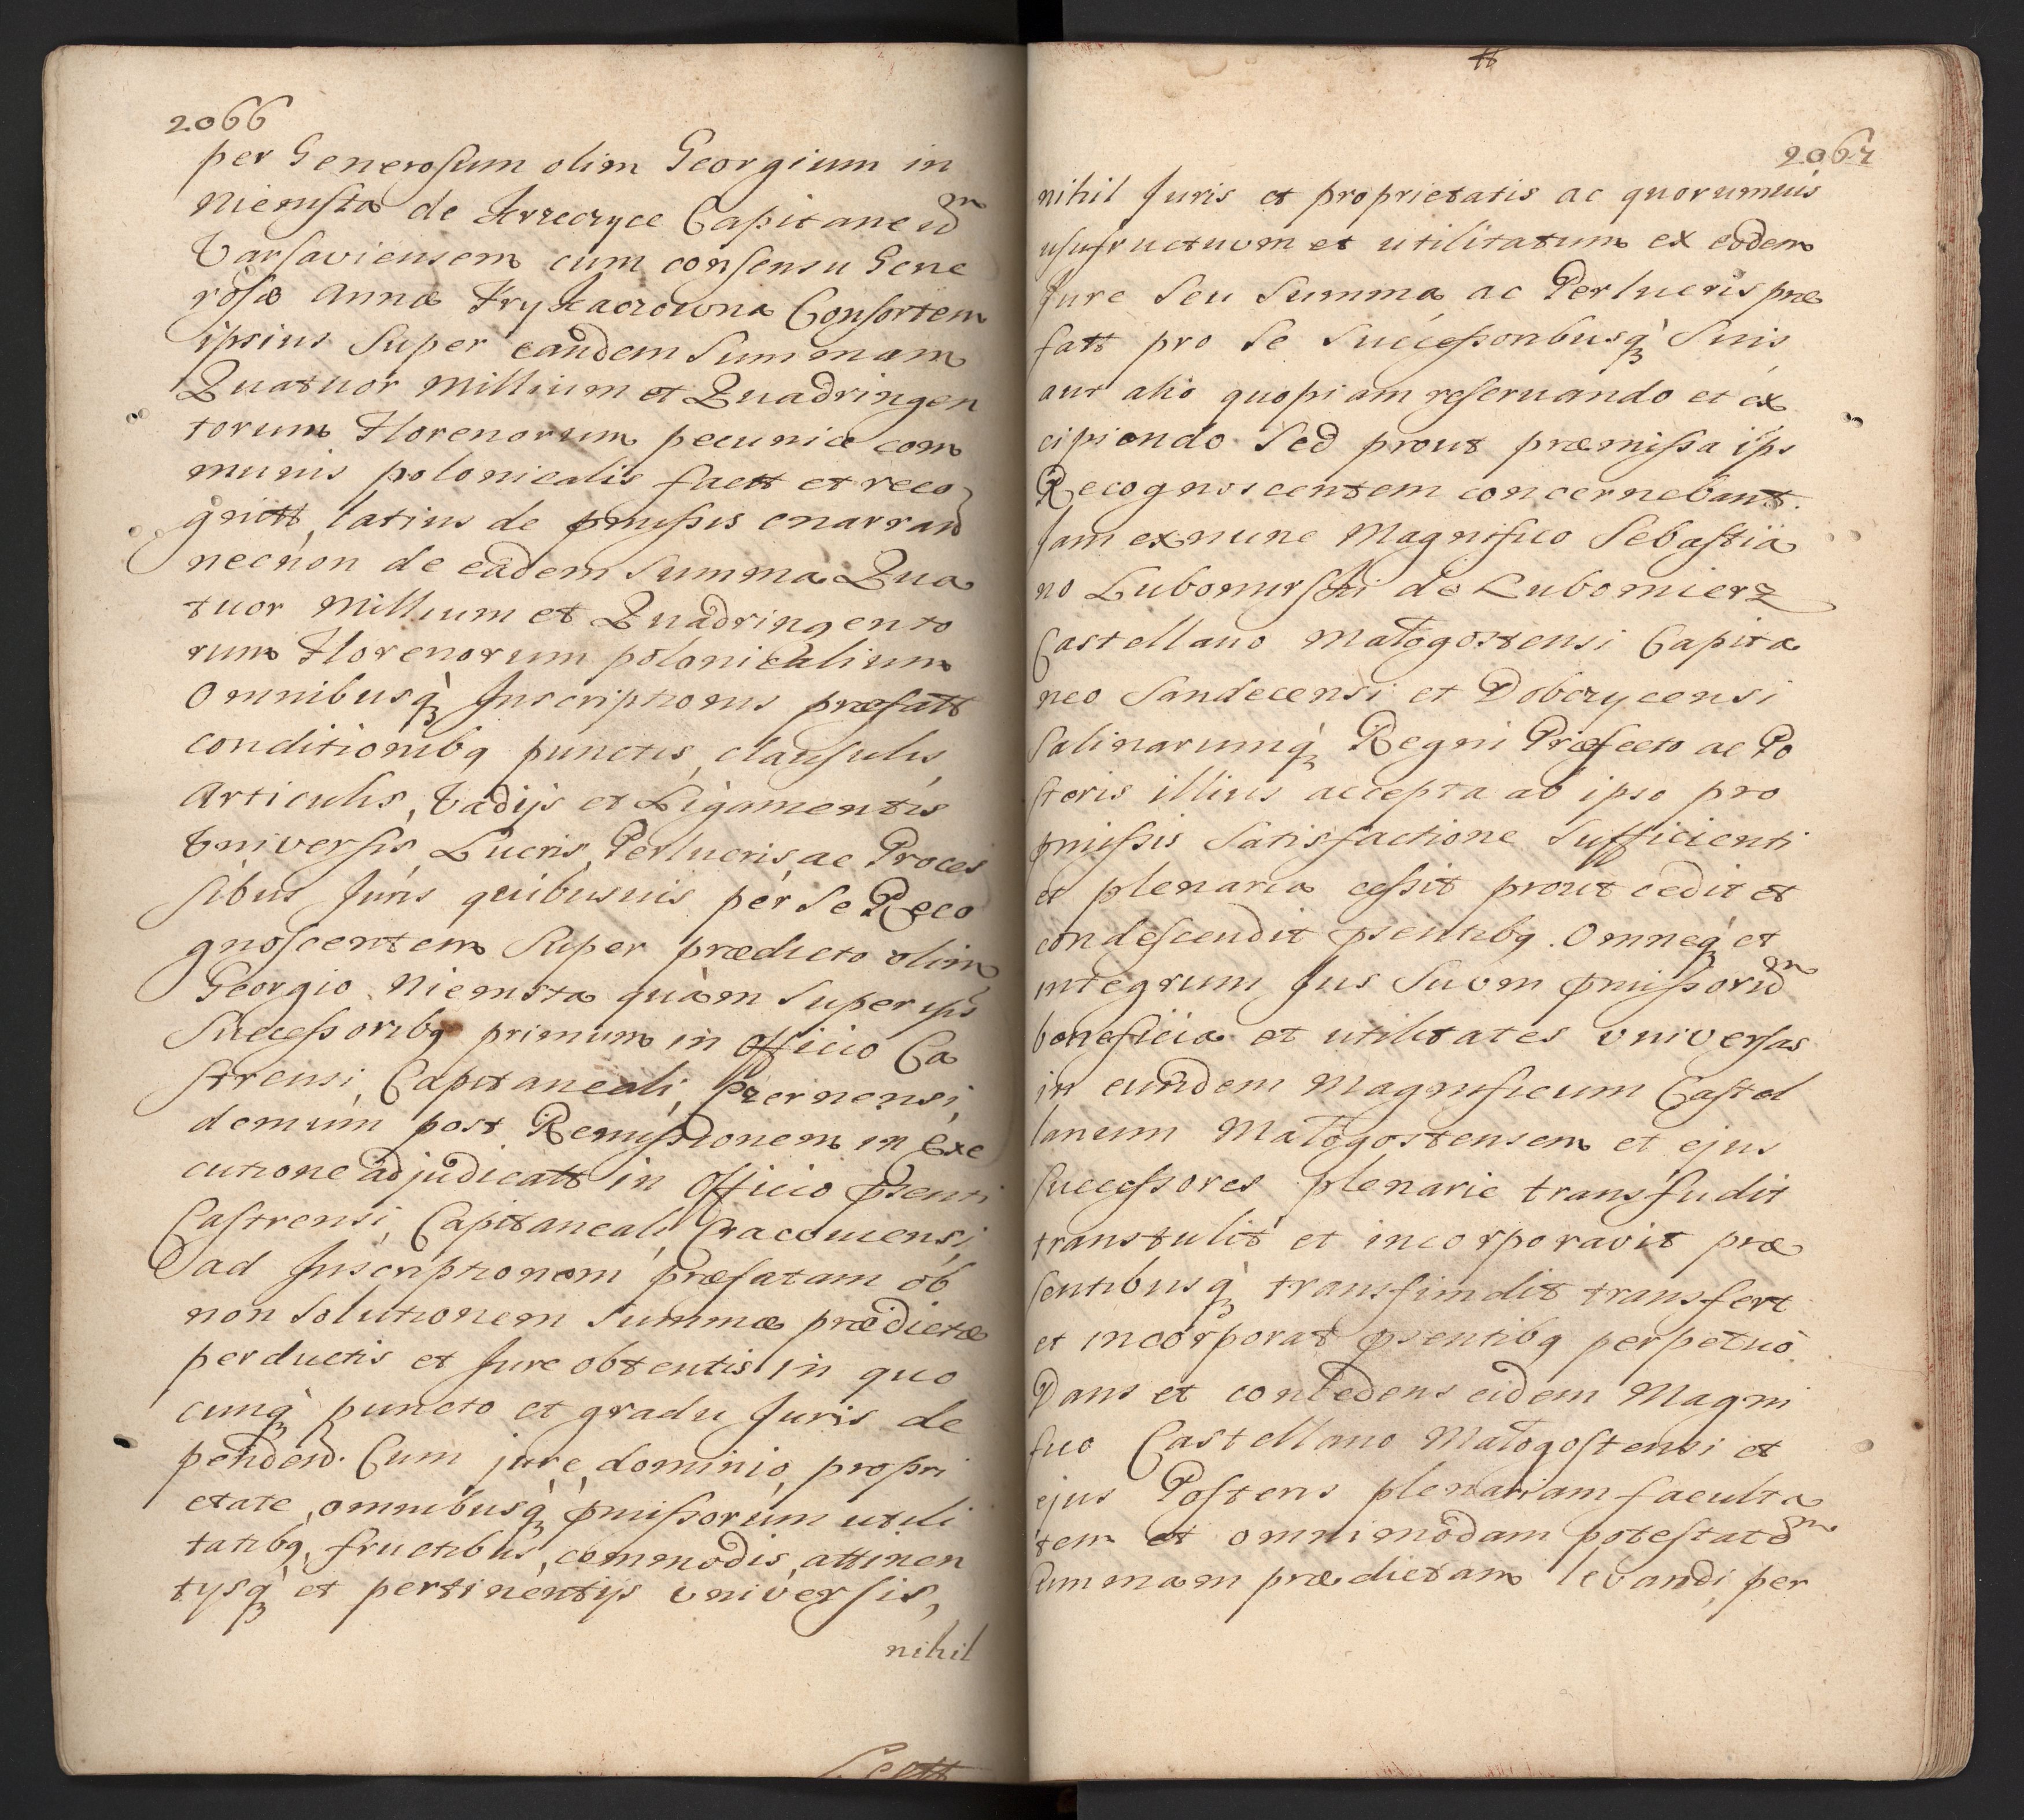 2066
per Generosum olim Georgium in
Niemsta de Krzeczyce Capitaneum
Varsaviensem cum consensu Gene
rosæ Annæ Frykaczowna Consortem
ipsius super eandem Summam
Quatuor Millium et Quadringen
torum Florenorum pecuniæ com
munis polonicalis factt et reco
gnitt, latius de pmissis enarran
necnon de eadem Summa Qua
tuor Millium et Quadringento
rum Florenorum polonicalium
Omnibusq Inscriptionis præfatt
conditionibq punctis, clausulis,
Articulis, Vadijs et Ligamentis
Universis, Lucris, Perlucris, ac Proces
sibus Juris quibusvis per se Reco
gnoscentem super prædicto olim
Georgio Niemsta quàm super ips
Successoribq primum in Officio Ca
strensi, Capitaneali, Xzernensi,
demum post Remissionem in Exe
cutione adjudicatt in Officio psenti
Castrensi, Capitaneali Cracoviensi,
ad Inscriptionem præfatam ob
non Solutionem Summæ prædictæ
perductis et Jure obtentis in quo
cunq puncto et gradu Juris de
penden. Cum jure, dominio, propri
etate, omnibusq pmissorum utili
tatibq, fructibus, commodis, attinen
tijsq et pertinentijs universis,
nihil
2067
nihil Juris et proprietatis ac quorumuis
usufructuum et utilitatum ex eodem
Jure Seu Summa ac Perlucris præ
fatt pro se Successoribusq Suis
aut alio quopiam reservando et ex
cipiendo. Sed prout præmissa ips
Recognoscentem concernebant.
Jam exnunc Magnifico Sebastia
no Lubomirski de Lubomierz
Castellano Małogostensi Capita
neo Sandecensi et Dobczycensi
Salinarumq Regni Præfecto ac Po
steris illius accepta ab ipso pro
pmissis Satisfactione Sufficienti
et plenaria cessit prout cedit et
condescendit psentibq. Omneq et
integrum Jus Suum pmissorum
beneficia et utilitates universas
in eundem Magnificum Castel
lanum Małogostensem et ejus
Successores plenarie transfudit
transtulit et incorporavit præ
sentibusq transfundit transfert
et incorporat psentibq perpetuò
Dans et concedens eidem Magni
fico Castellano Małogostensi et
ejus Posteris plenariam faculta
tem et omnimodam potestatem
Summam prædictam levandi, per